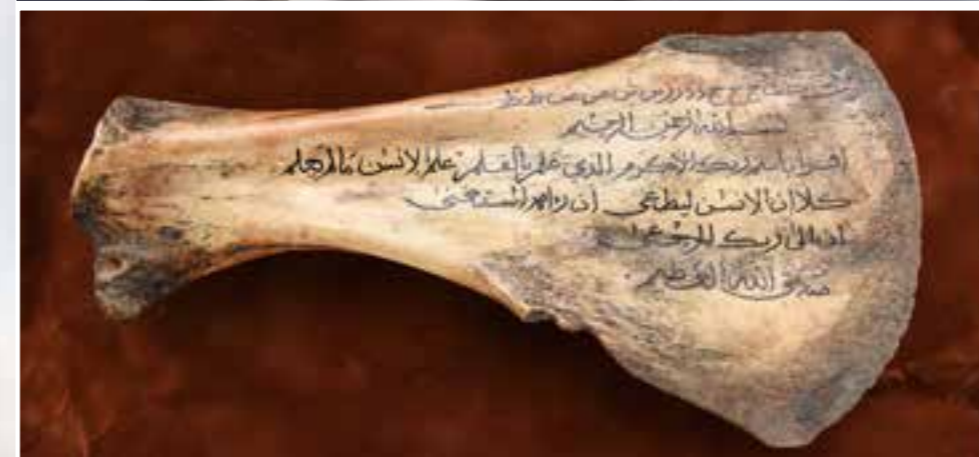 ج ح خ د ذ ر ز س ش ص ض ط ظ
بسم الله الرحمن الرحيم
اقرا باسم ربك الاكرم الذى علم بالقلم علم الانسن مالم يعلم
كلا ان الانسن ليطغى ان راه استغنى
ان الى ربك الرجعى
صدق الله العظيم